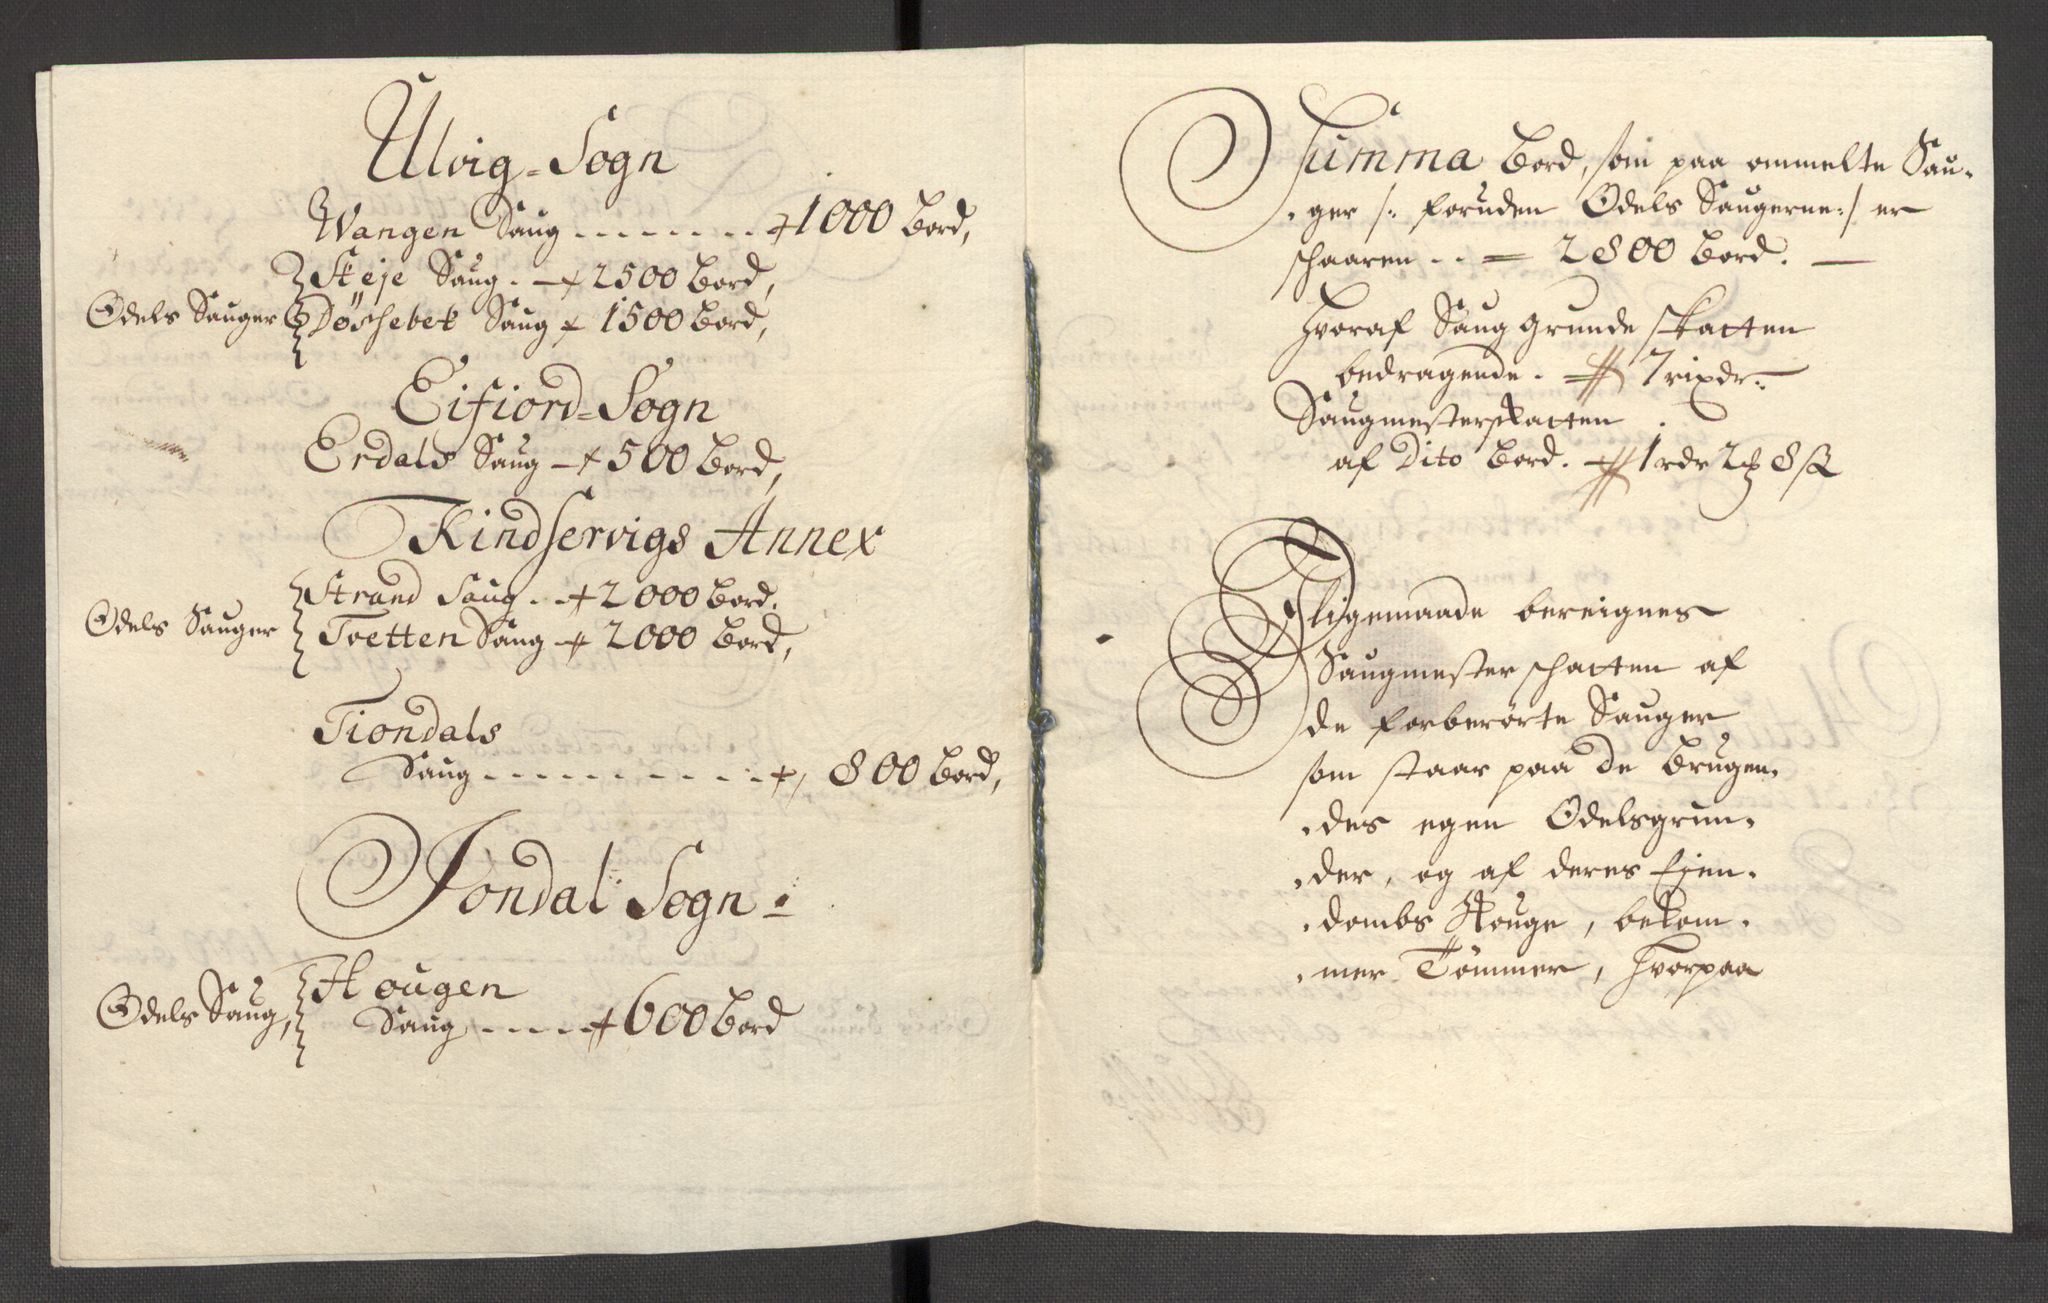 Ulvig-Sogn
Wangen Saug 1000 Bord,
Steje Saug 2500 Bord,
Odels Sauger Döschebek Saug 1500 Bord,
Eifiord-Sogn
Erdals Saug 500 Bord,
Kindservigs Annex
Strand Saug 2000 Bord.
Odels Sauger Tvetten Saug 2000 Bord,
Tiondals
Saug 800 Bord,
Jondal Sogn
Hougen
Odels Saug, Saug 600 Bord
Summa Bord, som paa ommelte Sau-
ger /: foruden Odels Saugerne :/ er
schaaren 2800 Bord.
Hvoraf Saug grunde skatten
bedragende. 7 rixdr:
Saugmesterskatten
af Dito Bord. 1 rdr 2 8 ß
Ligemaade bereignes
Saugmester schatten af
de forberörte Sauger
som staar paa de Brugen-
des egen Odelsgrun-
der, og af deres Eien-
dombs Skouge, bekom-
mer Tömmer, hvorpaa